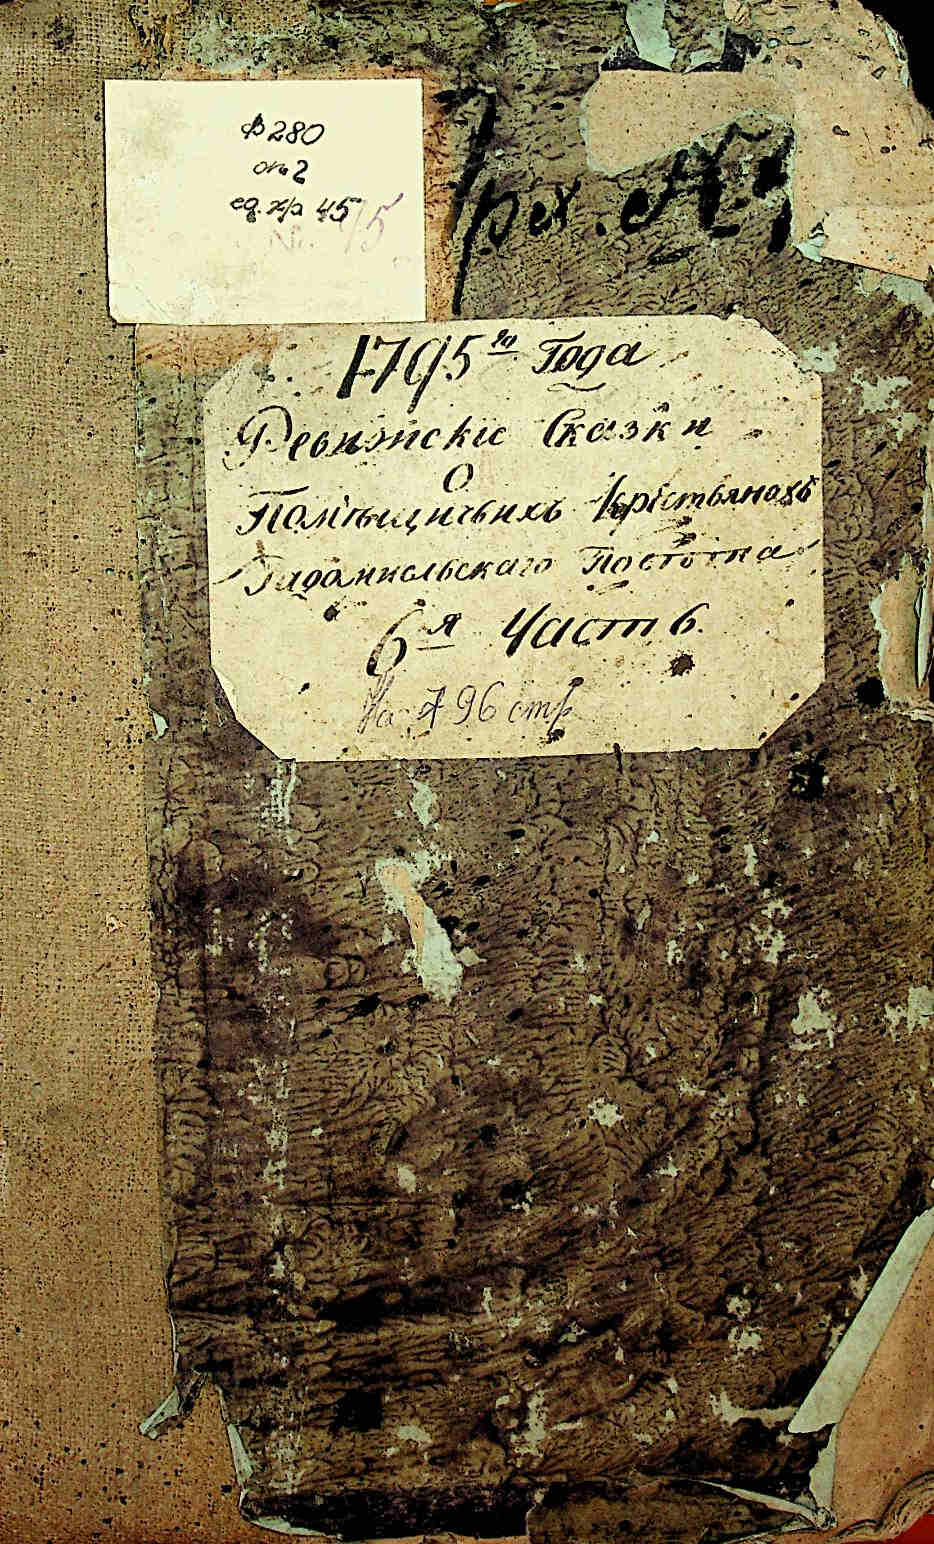 ф 280
оп 2
ед. хр 45
№. 45
Арх. №
1795го Года
Ревизские Сказки
О
Помѣщичьихъ Крестьянахъ
Радомысльскаго Повѣта
6я Часть
На 496 стр